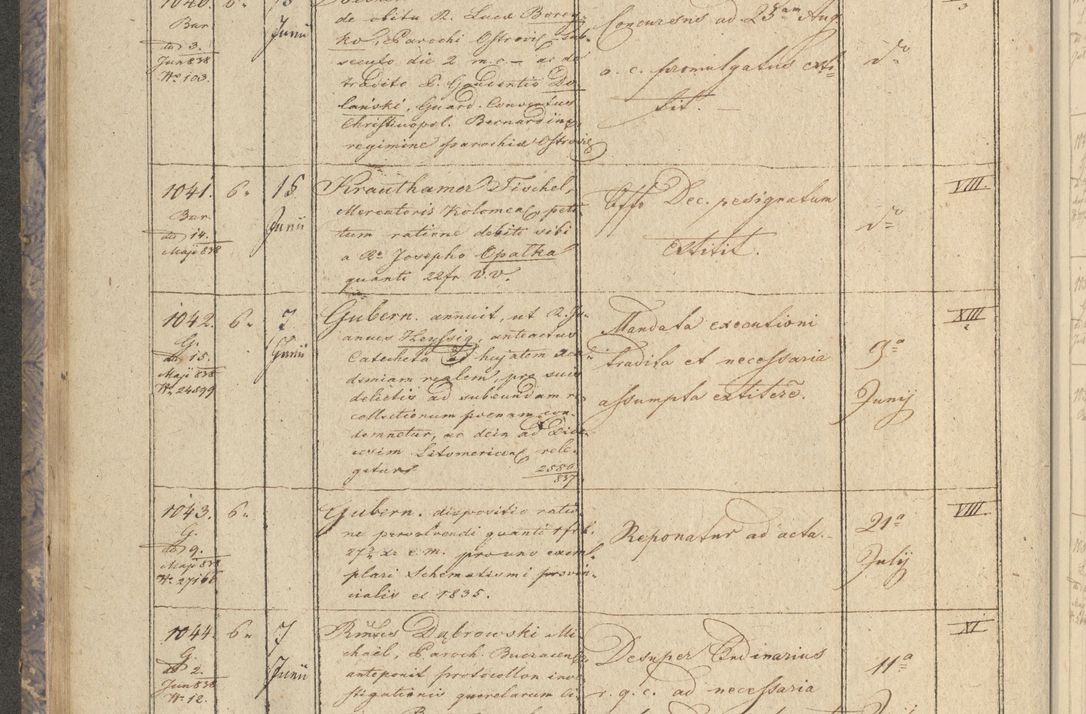 1040. 6. 15
Bar
dto 3.
Jun 838
No 103.
Junii
de obitu R. Luca Borey-
ko, Parochi Ostrovie, sub-
secuto die 2 m. c. – ac de
tradito P. Gaudentio Do-
lański, Guard. Conventus
Christinopol. Bernardino
regimine Parochia Ostrovie
Concursus ad 23am Aug
a. c. promulgatus exti-
tit –
do
1041. 6. 15
Bar
dto 14.
Maji 838
Junii
Krauthamer Fischel,
Mercatoris Kolomea peti-
tum ratione debiti sibi
a Rdo Josepho Opałka
quanti 22 fr V. V.
Offo Dec. resignatum
extitit.
do
VIII.
1042. 6. 7
G.
dto 15.
Maji 838
No 24899
Junii
Gubern. annuit, ut R. Jo-
annes anteactus
Catecheta ad hujatem Aca-
demiam realem, pro suis
delictis ad subeundam re-
collectionum poenam con-
demnetur, ac dein ad Dioe-
cesim Litomericen rele-
getur
2580
837
Mandata executioni
tradita et necessaria
assumpta extitere.
9a
Junij
XIII
1043. 6.
G.
dto 9.
Maji 838
No 27166
Gubern. dispositio ratio-
ne persolvendi quanti 1 fr.
27 2/4 xr. c. m. pro uno exem-
plari Schematismi provin-
cialis ex 1835.
Reponatur ad acta.
21a
Julij
VIII.
1044. 6. 7
G.
dto 2.
Jun 838
No 12.
Junii
Dąbrowski Mi-
chaël, Paroch. Buczacen
anteponit protocollon inve-
stigationis querelarum
Desuper Ordinarius
r. g. c. ad necessaria
11a
XI